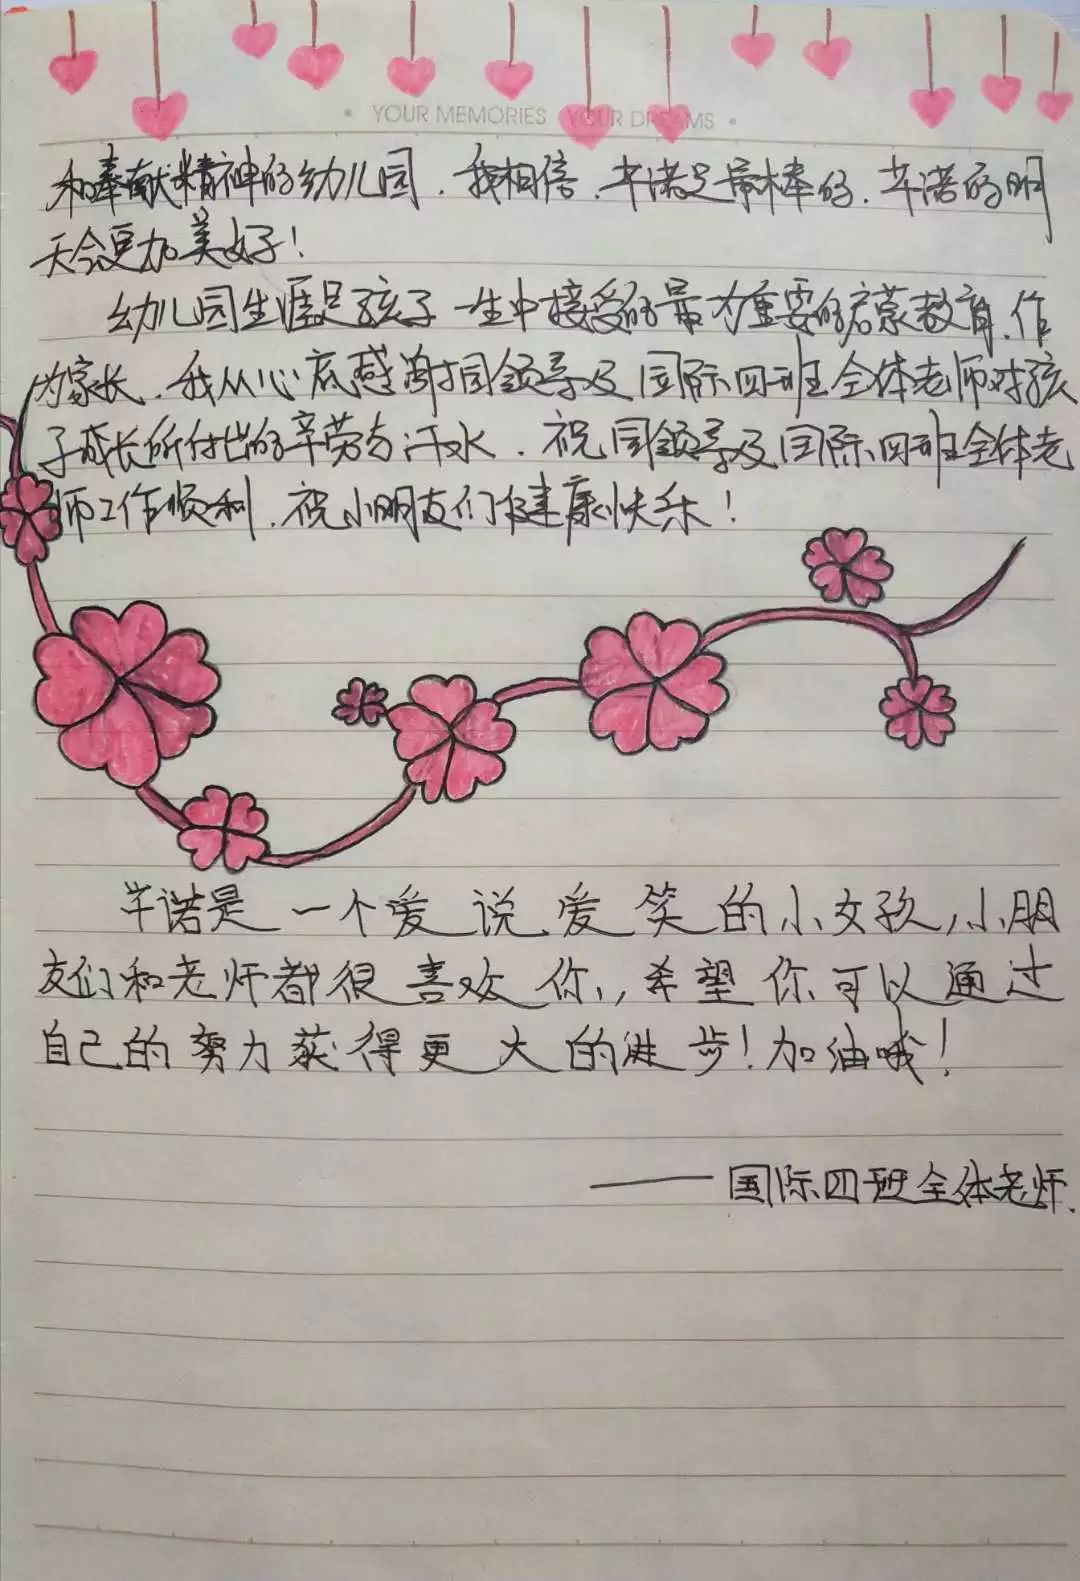 YOUR MEMORIES YOUR DREAMS
和奉献精神的幼儿园．我相信．芊诺是最棒的．芊诺的明
天会更加美好！
幼儿园生涯是孩子一生中接受的最为重要的启蒙教育．作
为家长．我从心底感谢园领导及国际四班全体老师对孩
子成长所付出的辛劳与汗水．祝园领导及国际四班全体老
师工作顺利．祝小朋友们健康快乐！
芊诺是一个爱说、爱笑的小女孩，小朋
友们和老师都很喜欢你，希望你可以通过
自己的努力获得更大的进步！加油哦！
——国际四班全体老师.